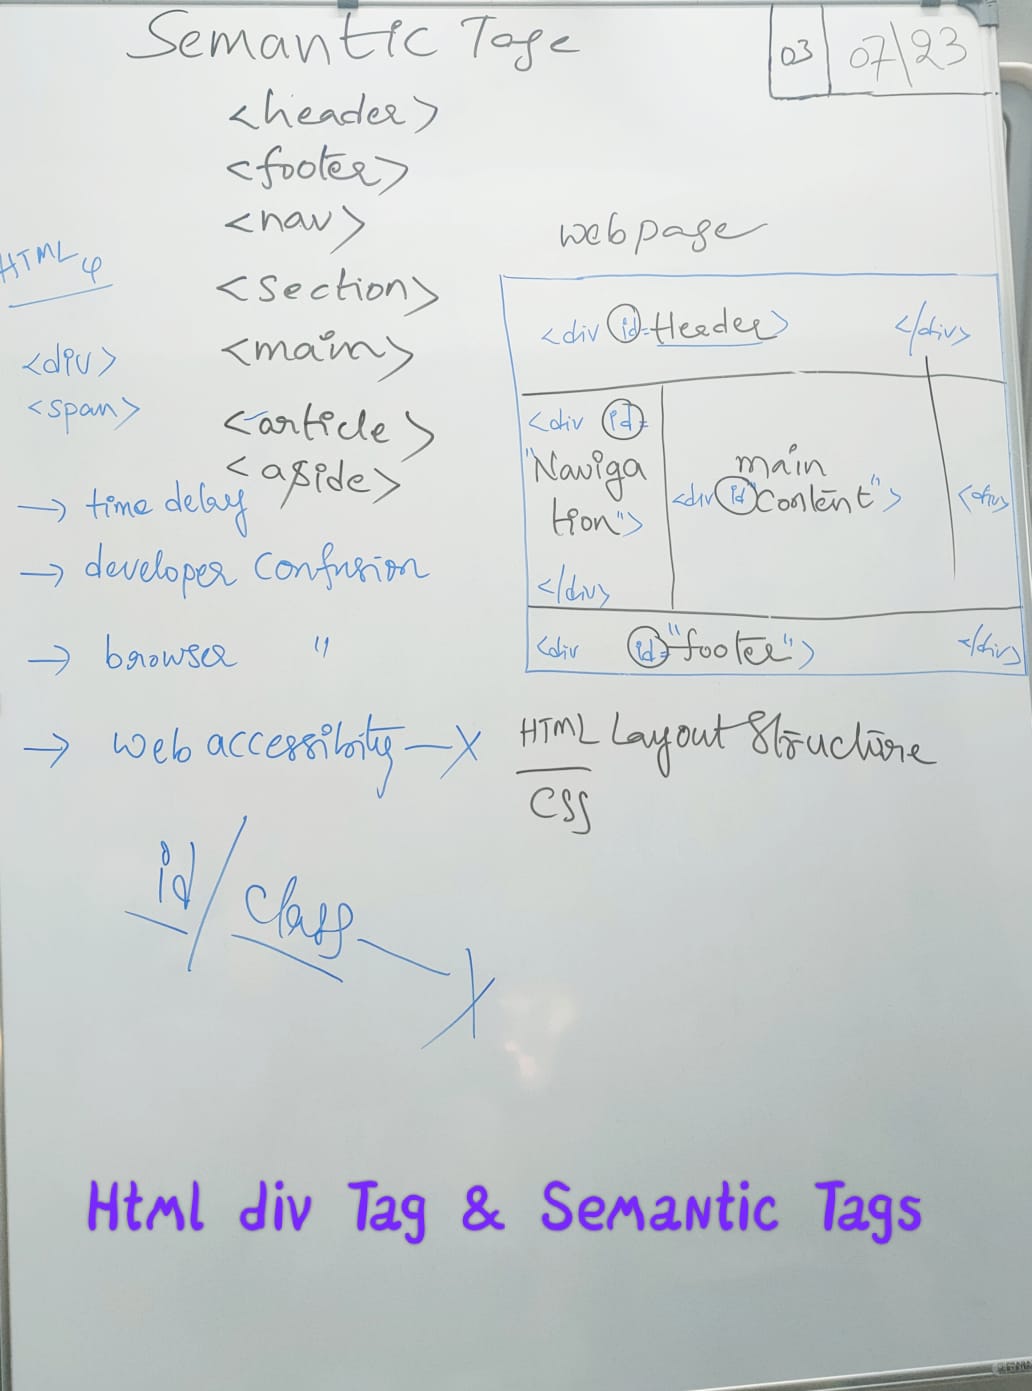 Semantic Tags
03 07\23
<header>
<footer>
<nav>
<section>
<main>
<article>
<aside>
HTML 4
<div>
<span>
→ time delay
→ developer confusion
→ browser "
→ web accessibity — X
id/class — X
webpage
<div id=Header> </div>
<div id=
"Naviga
tion">
</div>
main
<div id "Content"> </div>
<div id="footer"> </div>
HTML Layout Structure
CSS
Html div Tag & Semantic Tags